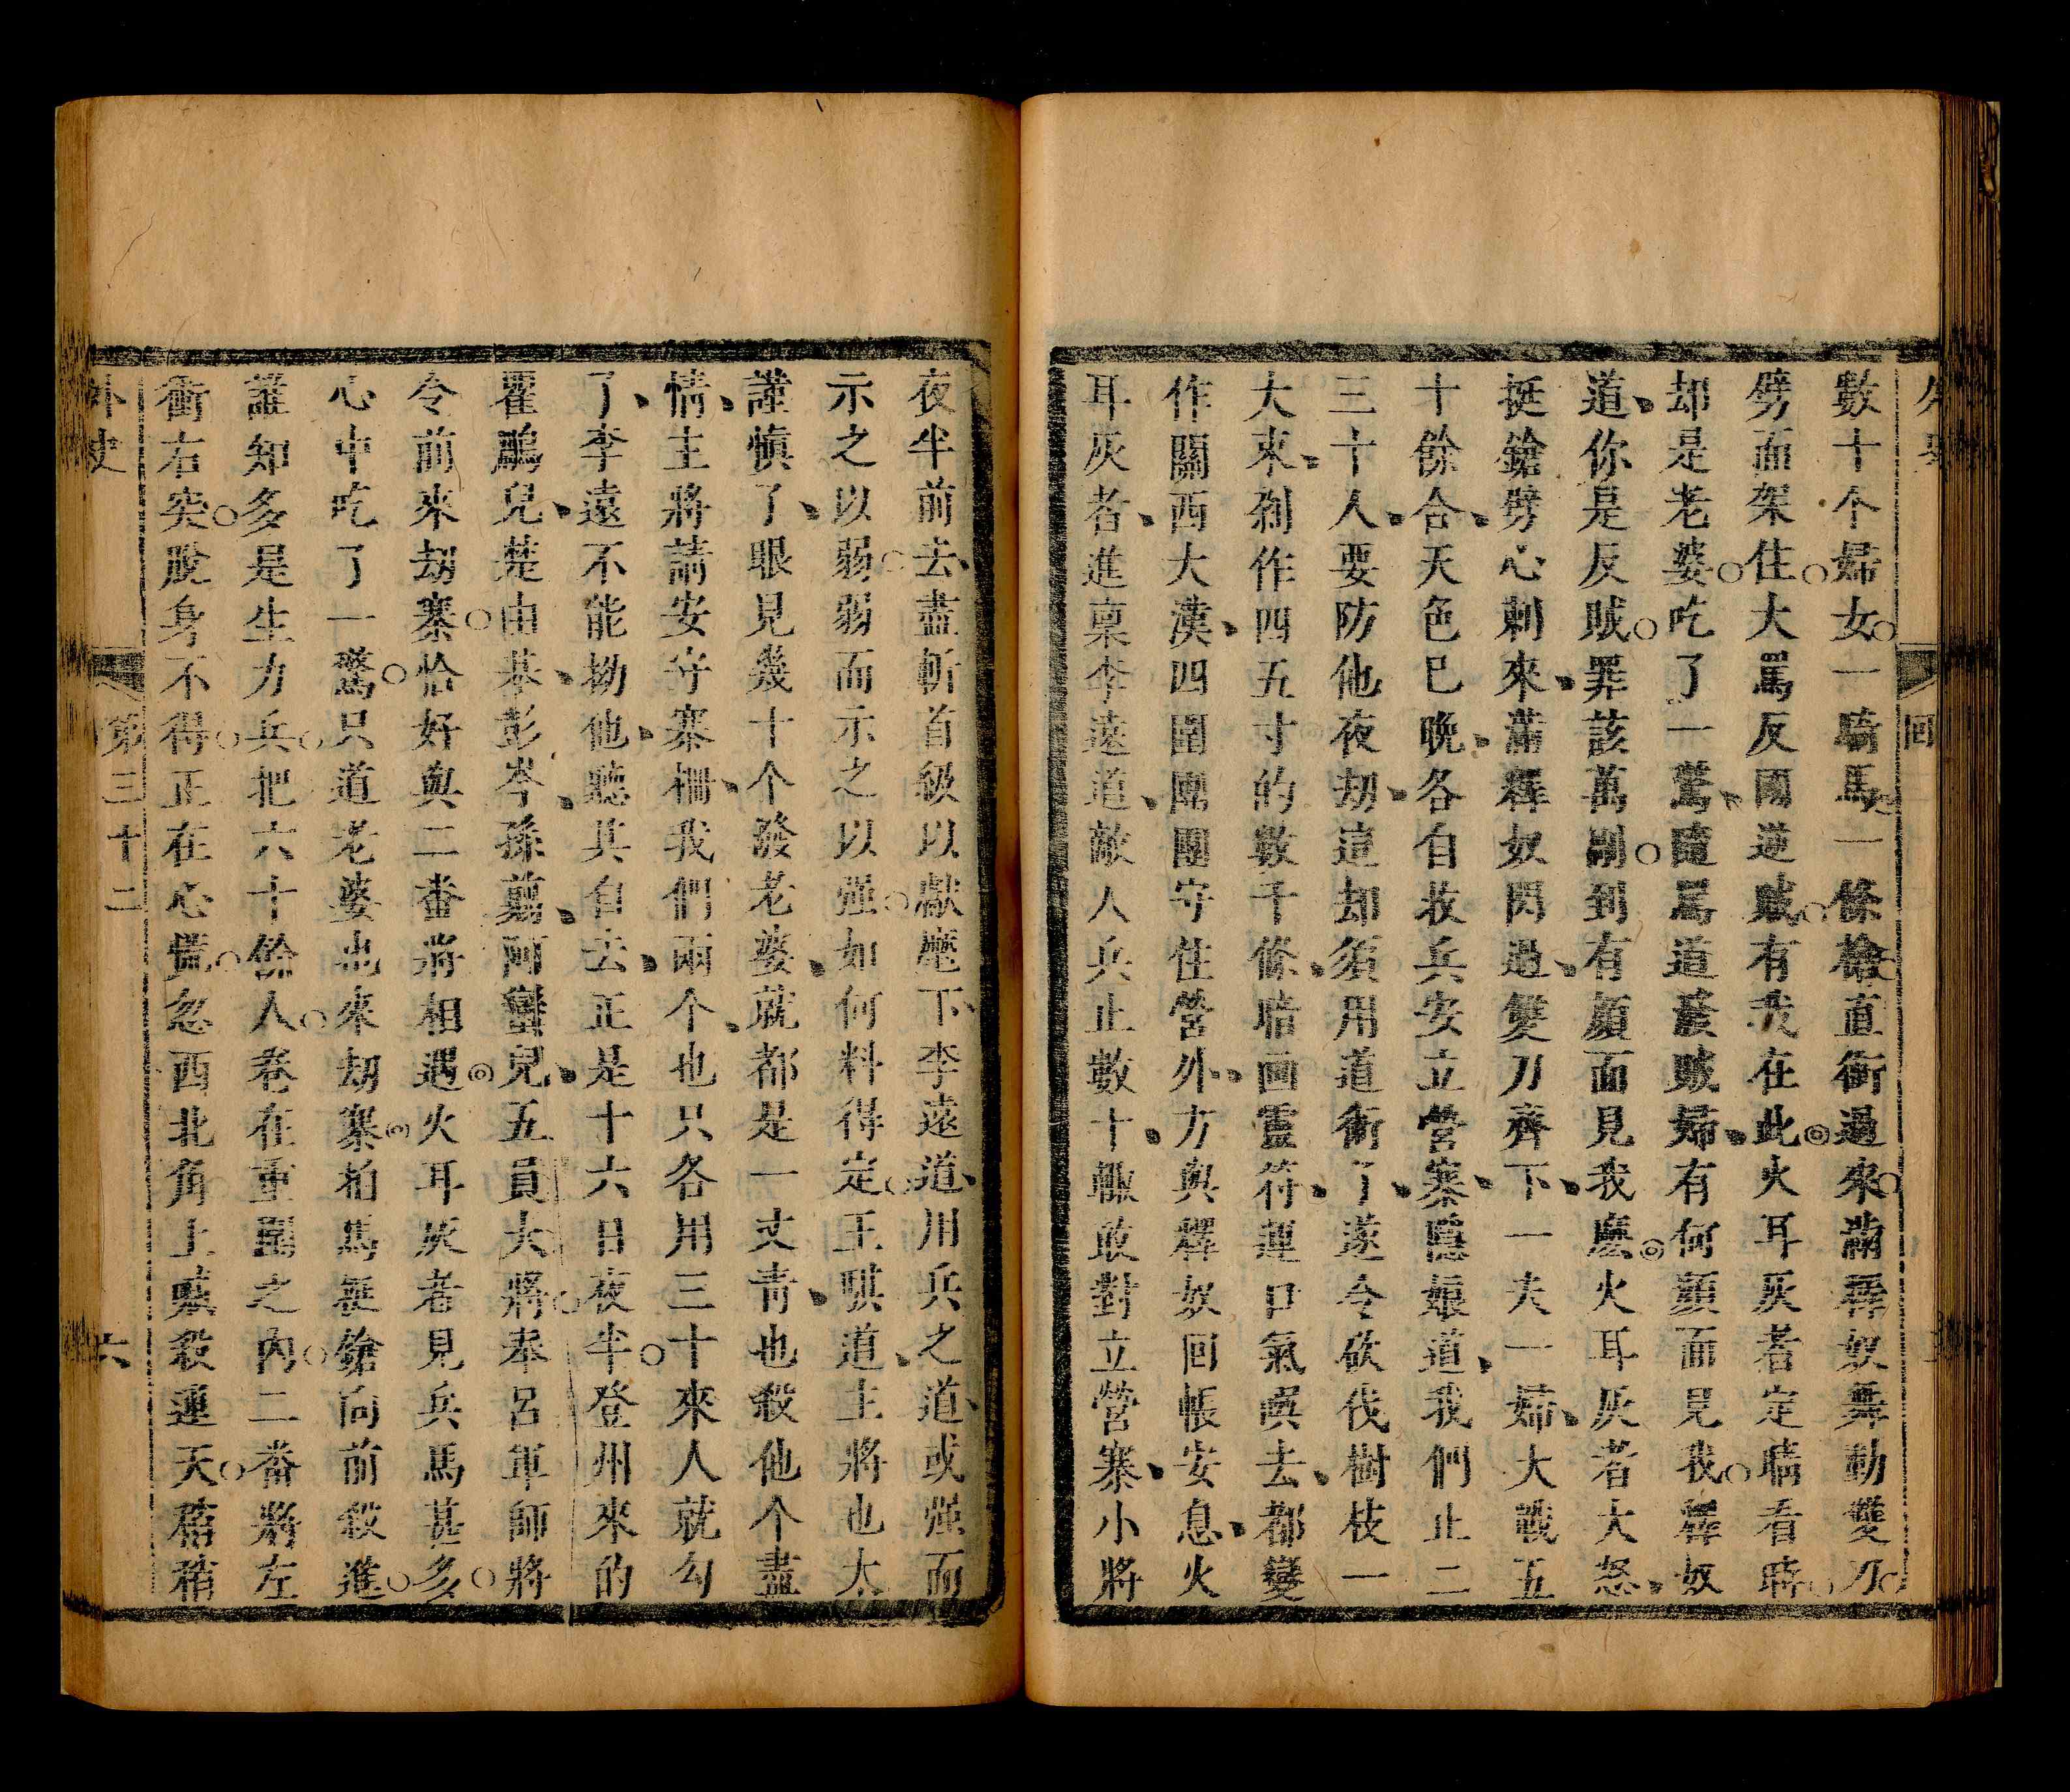 外史
回
數十个婦女一騎馬一條槍直衝過來滿釋奴舞動雙刀
劈面架住大罵反國逆賊有我在此火耳灰者定睛看時
却是老婆吃了一驚隨罵道潑賊婦有何顏面見我釋奴
道你是反賊罪該萬剮到有顏面見我麽火耳灰者大怒
挺鎗劈心刺來滿釋奴閃過雙刀齊下一夫一婦大戰五
十餘合天色已晚各自收兵安立營寨隱娘道我們止二
三十人要防他夜刼這却須用道術了遂令砍伐樹枝一
大束刹作四五寸的數千條暗画靈符運口氣噀去都變
作關西大漢四圍團團守住營外方與釋奴回帳安息火
耳灰者進稟李遠道敵人兵止數十輙敢對立營寨小將
夜半前去盡斬首級以獻麾下李遠道用兵之道或强而
示之以弱弱而示之以强如何料得定王騏道主將也太
謹慎了眼見幾十个潑老婆就都是一丈青也殺他个盡
情主將請安守寨柵我們兩个也只各用三十來人就勾
了李遠不能拗他聽其自去正是十六日夜半登州來的
瞿鵰兒楚由基彭岑孫翦阿蠻兒五員大將奉呂軍師將
令前來刼寨恰好與二畨將相遇火耳灰者見兵馬甚多
心中吃了一驚只道老婆也來刼寨拍馬挺鎗向前殺進
誰知多是生力兵把六十餘人卷在重圍之內二畨將左
衝右突脫身不得正在心慌忽西北角上喊殺連天稿稍
外史
第三十二
六